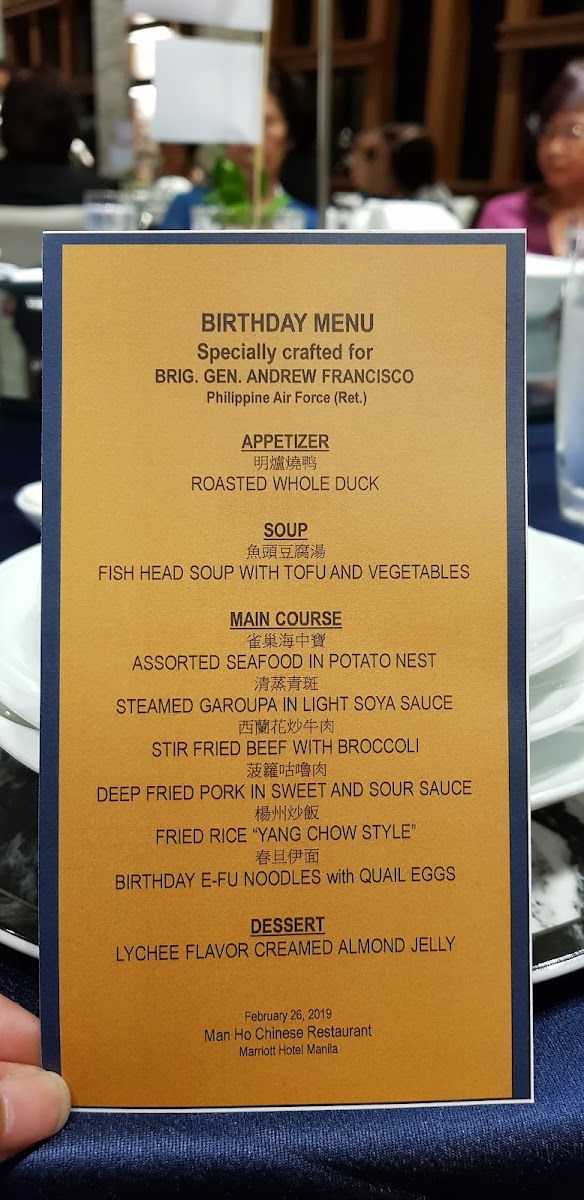 BIRTHDAY MENU
Specially crafted for
BRIG. GEN. ANDREW FRANCISCO
Philippine Air Force (Ret.)
APPETIZER
明爐燒鸭
ROASTED WHOLE DUCK
SOUP
魚頭豆腐湯
FISH HEAD SOUP WITH TOFU AND VEGETABLES
MAIN COURSE
雀巢海中寶
ASSORTED SEAFOOD IN POTATO NEST
清蒸青斑
STEAMED GAROUPA IN LIGHT SOYA SAUCE
西蘭花炒牛肉
STIR FRIED BEEF WITH BROCCOLI
菠籮咕嚕肉
DEEP FRIED PORK IN SWEET AND SOUR SAUCE
楊州炒飯
FRIED RICE “YANG CHOW STYLE”
春旦伊面
BIRTHDAY E-FU NOODLES with QUAIL EGGS
DESSERT
LYCHEE FLAVOR CREAMED ALMOND JELLY
February 26, 2019
Man Ho Chinese Restaurant
Marriott Hotel Manila